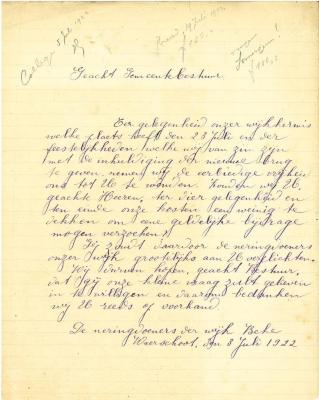 College 5 Juli 1922
Raad, 19 Juli 1922
Geacht Gemeentebestuur
Ter gelegenheid onzer wijkkermis
welke plaats heeft den 23 Juli en der
feestelijkheden welke wij van zin zijn
met de inhuldiging der nieuwe brug
te geven, nemen wij de eerbiedige vrijheid
ons tot U te wenden houden wij U,
geachte Heeren, ter dier gelegenheid en
ten einde onze kosten een weinig te
dekken om eene geldelijke bijdrage
mogen verzoeken.
Gij zoudt daardoor de neringdoeners
onzer wijk grootelijks aan U verplichten.
Wij durven hopen, geacht Bestuur,
dat Gij onze kleine vraag zult gelieven
in te willigen en daarom bedanken
wij U reeds op voorhand.
De neringdoeners der wijk Beke
Waerschoot, den 8 Juli 1922